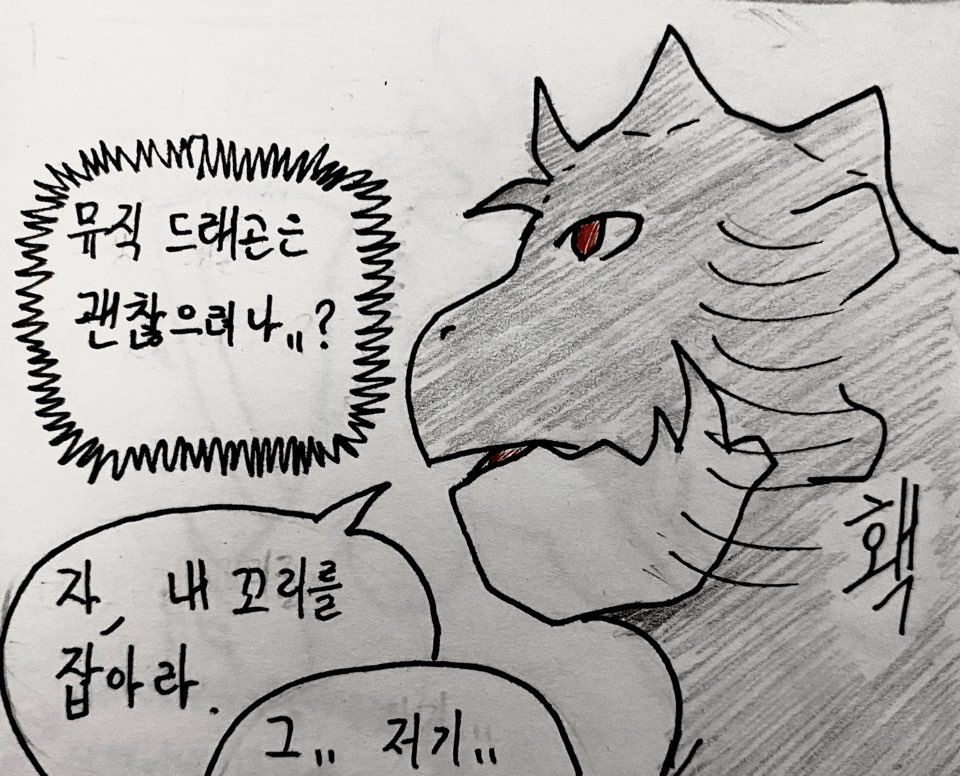 뮤직 드래곤은
괜찮으려나,,?
자, 내 꼬리를
잡아라.
그,, 저기,,
홱